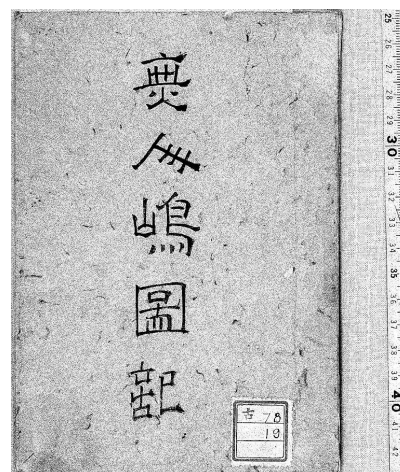 無人嶋圖記
古 78
19
25
26
27
28
29
30
31
32
33
34
35
36
37
38
39
40
41
42